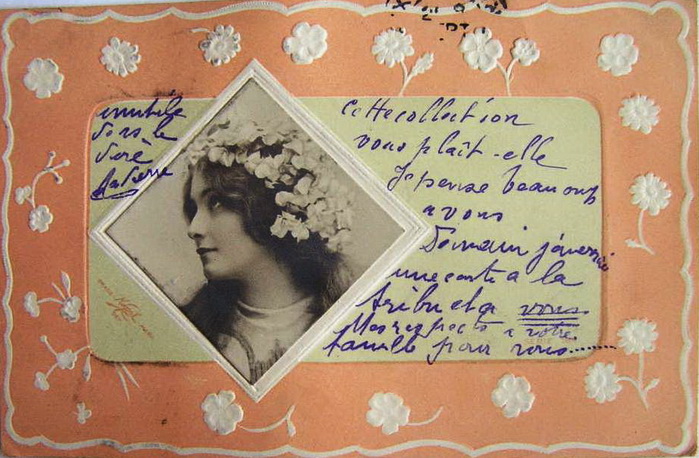 inutile
dans le
cette collection
vous plaît-elle
Je pense beaucoup
a vous
Demain j'enverrai
une carte a la
tribu et a vous
Mes respects a votre
famille pour vous........